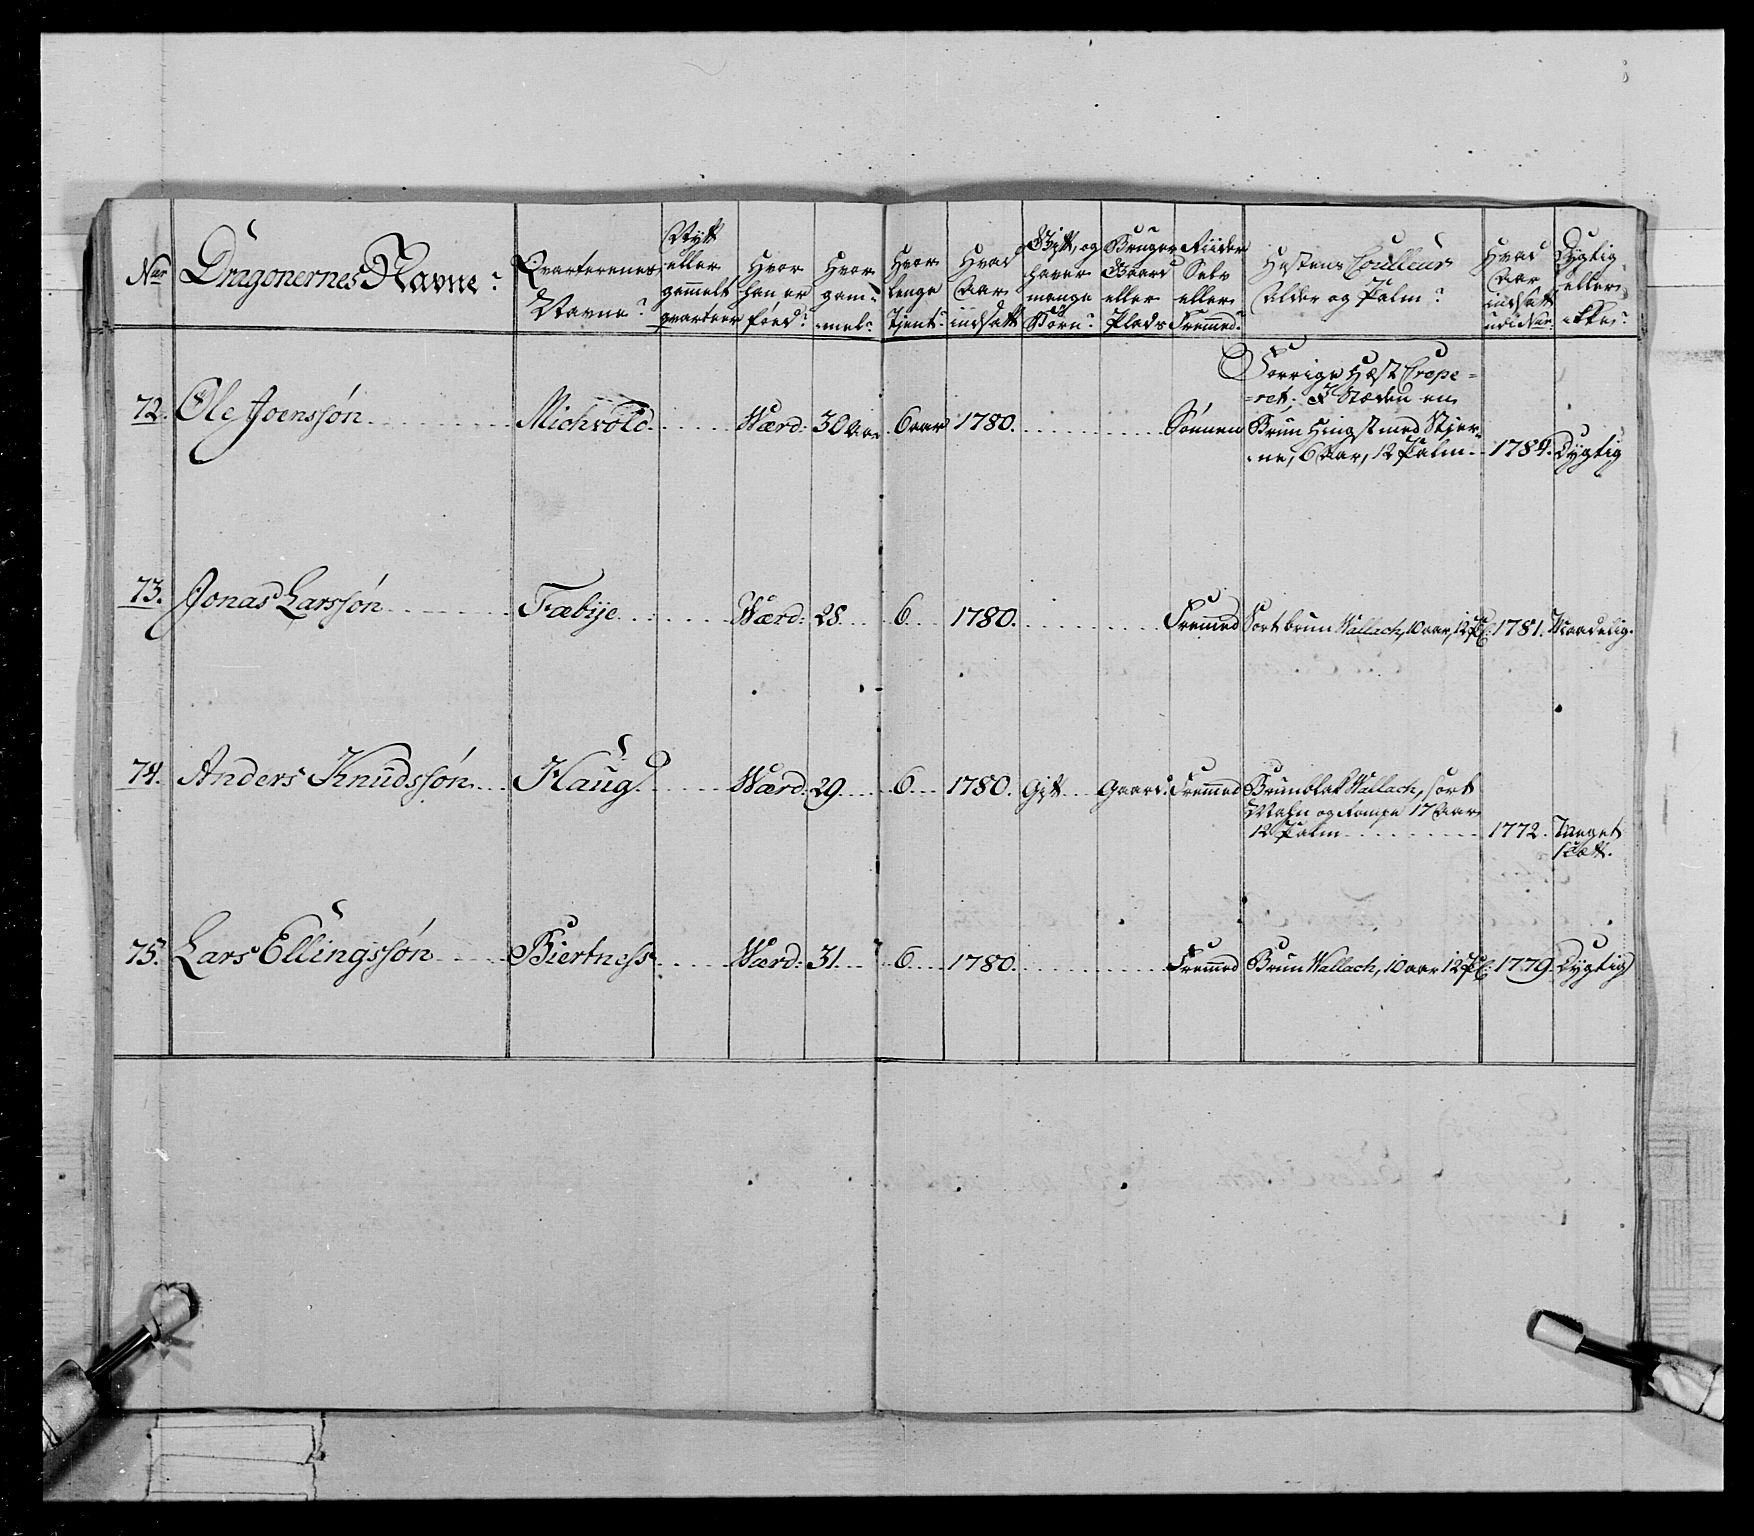 Ner
Dragonernes Navne?
Qvarterenes Navne?
Nytt eller gammelt qvarteer
Hvor han er fød?
Hvor gam=
mel?
Hvor lenge tjent?
Hvad Aar indsatt
Gift, og haver mange Børn?
Bruger Gaard eller Plads
Riider Selv eller Fremmed?
Hestens Couleur Alder og Palm?
Hvad Aar indsatt udi Ner
Dygtig eller ikke?
72. Ole Joenssøn Michvold Værd: 30 Aar 6 aar 1780. Sønnen
Forrige Hest Crepe=
=ret; I Stæden en
Brun Hingst med Stjer=
=ne, 6 Aar, 12 Palm 1784. Dygtig
73. Jonas Larssøn Fæbye Værd: 28. 6 1780. Fremmed Sortbrun Wallach, 10 aar, 12 pl: 1781. Maadelig.
74. Anders Knudssøn Haug Værd: 29 6 1780. Gift Gaard. Fremmed Brunblak Wallach, sort
Mahn og Rompe 17 Aar
12 Palm 1772. Meget
slætt.
75. Lars Ellingssøn Biertness Værd: 31 6 1780. Fremmed Brun Wallach, 10 aar 12 pl: 1779. Dygtig